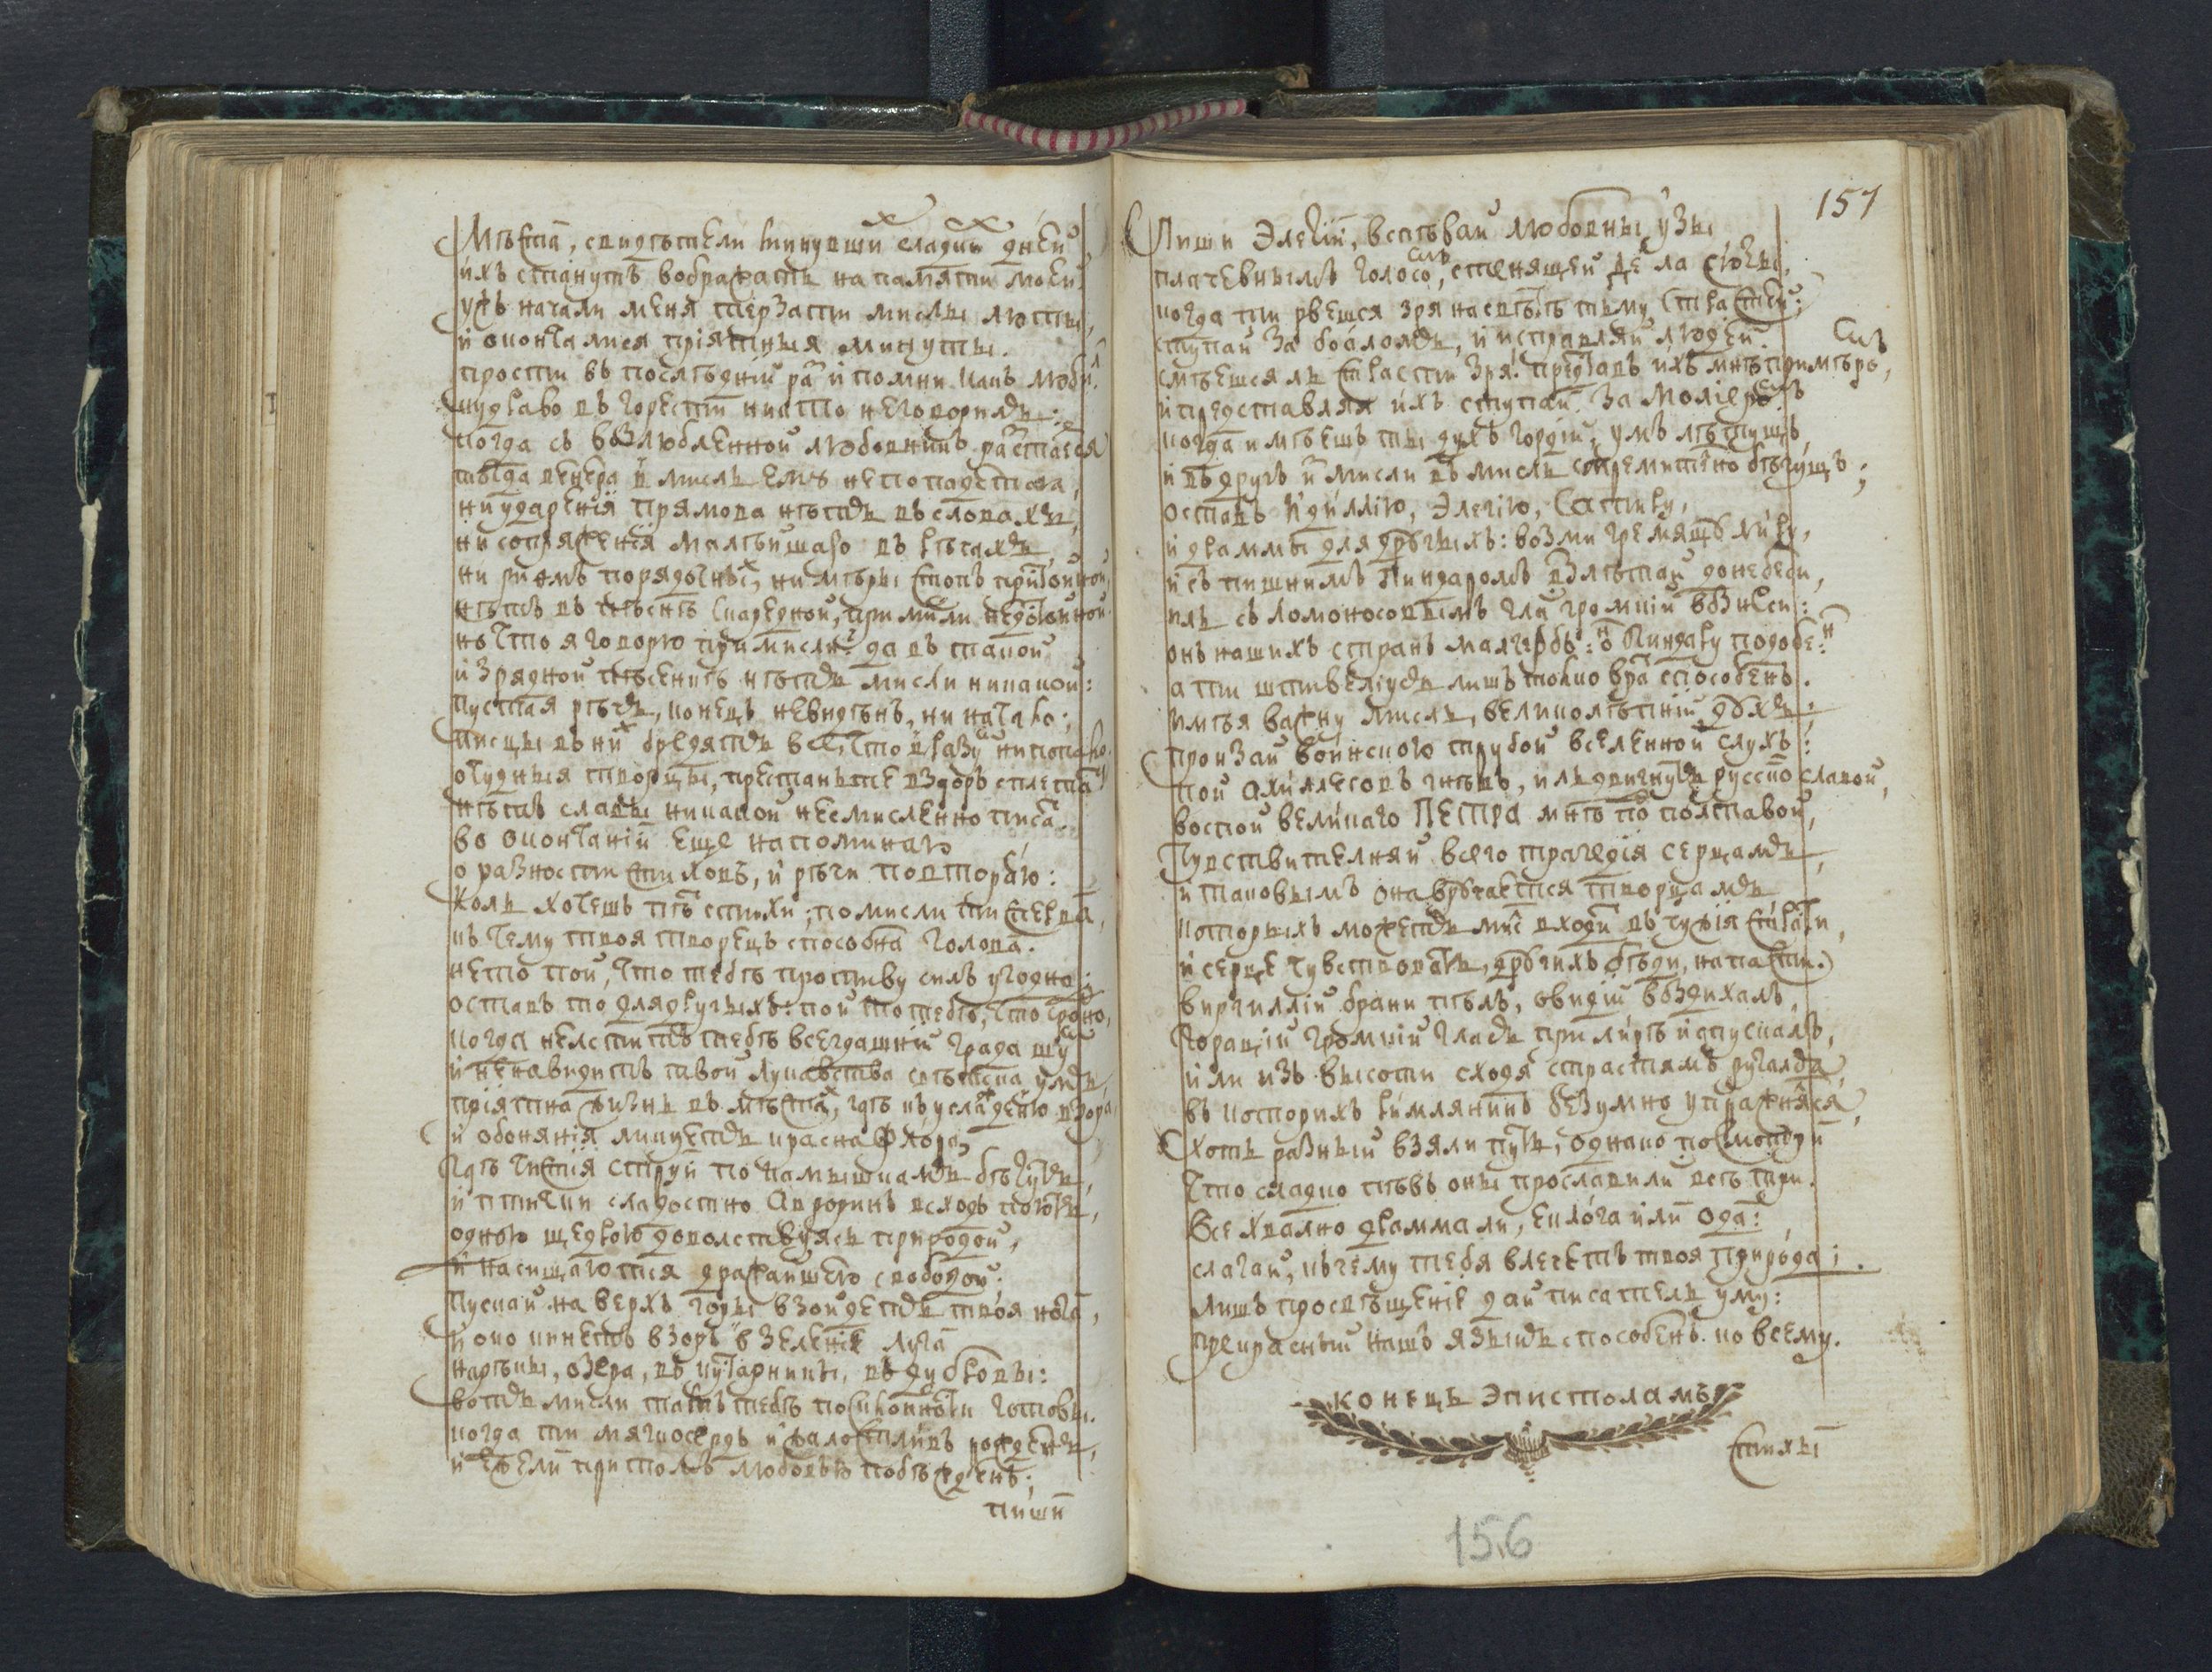 Мѣста, свидѣтели минувши^х сладки^х дней
ихъ стануть вображать на памяти моей
ужъ начали меня терзати мислы люты,
и окончалися пріятныя минуты.
прости въ послѣдній ра^з и помни какъ любил.
кудряво въ горести никто неговориль:
когда съ возлюбленной любовникъ ра^зстается
тогда венера в мисль ему непопадется,
ни ударенія прямова нѣть въ словахъ,
ни сопряженія малѣйшаго въ рѣчахъ,
ни рифмъ порядочны^х, ни мѣры стопъ пристойной,
нѣтъ въ пѣснѣ скаредной, при мисли недостойной.
но что я говорю при мисли? да въ такой
изрядной пѣсенкѣ нѣть мисли никакой:
пустая рѣчь, конецъ невидѣнъ, ни начало;
писцы въ ни^х бредять все, что в разу^м нипопало.
о чудныя творцы, престаньте вздоръ сплетать
нѣтъ славы никакой несмисленно писа^т.
во окончаніи еще напоминаю
о разности стиховъ, и рѣчи повторяю:
коль хочешь пѣ^т стихи; помисли ти сперва,
къ чему твоя творецъ способна голова.
нето пой, что тебѣ противу силъ угодно;
оставъ то для другихъ: пой то тебѣ, что сродно,
когда нелстить тебѣ всегдашній града шу^м
и ненавидитъ твой лукавства свѣтска умъ,
пріятна жизнь въ мѣста^х, гдѣ къ услажденію взора
и обонянія ликуеть красна Флора,
гдѣ чистия струи по камышкамъ бѣгуть,
и птички сладостно Авроринъ всходъ поють,
одною щедрою доволствуясь природой,
и насищаются дражайшею свободой;
пускай на верхъ горы взойдеть твоя нога,
и око кинетъ взоръ в зеленіе луга
на рѣки, озера, въ кустарники, въ дубровы:
воть мисли тамъ тебѣ по склонности готовы.
когда ти мягкосердъ и жалостливъ рожденъ,
и ежели притомъ любовью побѣжденъ;
пиши
157
Пиши Элегіи, вспѣвай любовны узы
плачевнымъ голосо^мъ стенящей де ла сюзы,
когда ти рвешся зря на свѣтѣ тьму страстей:
ступай за боаломъ, и исправляй людей.
смѣешся ль страсти зря! представъ ихъ мнѣ примѣро^мъ,
и представляя ихъ ступай за Моліеро^мъ.
когда имѣешъ ты духъ гордій, умъ лѣтущъ,
и вдругъ из мисли въ мисль стремително бѣгущъ;
оставъ Идиллію, Элегію, Сатиру,
и драммы для другихъ: возми гремящу лиру,
и съ пишнимъ Пиндаромъ взлѣтай до небеси,
иль съ Ломоносовимъ гла^с громкій вознеси:
онъ нашихъ странъ малгербъ: о^н Пиндару подобе^н
а ти штивеліусъ лишъ толко вра^т способенъ.
имѣя важну мислъ, великолѣпній духъ;
пронзай воинскою трубой вселенной слухъ:
пой Ахиллесовъ гнѣвъ, иль двигнутъ русско^й славой,
воспой великаго ПЕТРА мнѣ подъ полтавой,
Чувствителняй всего трагедія сердцамъ,
и таковымъ она вручается творцамъ,
которыхъ можеть мис^л входи^т въ чужія страсти,
и сердце чувствовать, другихъ бѣди, напасти.
виргиллій брани пѣлъ, овидій воздихалъ,
Горацій громкій гласъ при лирѣ испускалъ,
или изъ высоти сходя страстямъ ругалса,
въ которихъ римлянинъ безумно упражнялся,
Хоть разный взяли путь, однако посмотри
что сладко пѣвъ оны прославили всѣ три.
Все хвално драмма ли, еклога или ода:
слагай, къ чему тебя влечетъ твоя природа;
лишъ просвѣщеніе дай писатель уму:
прекрасный нашъ языкъ способенъ ко всему.
конецъ эпистоламъ
стихы
156